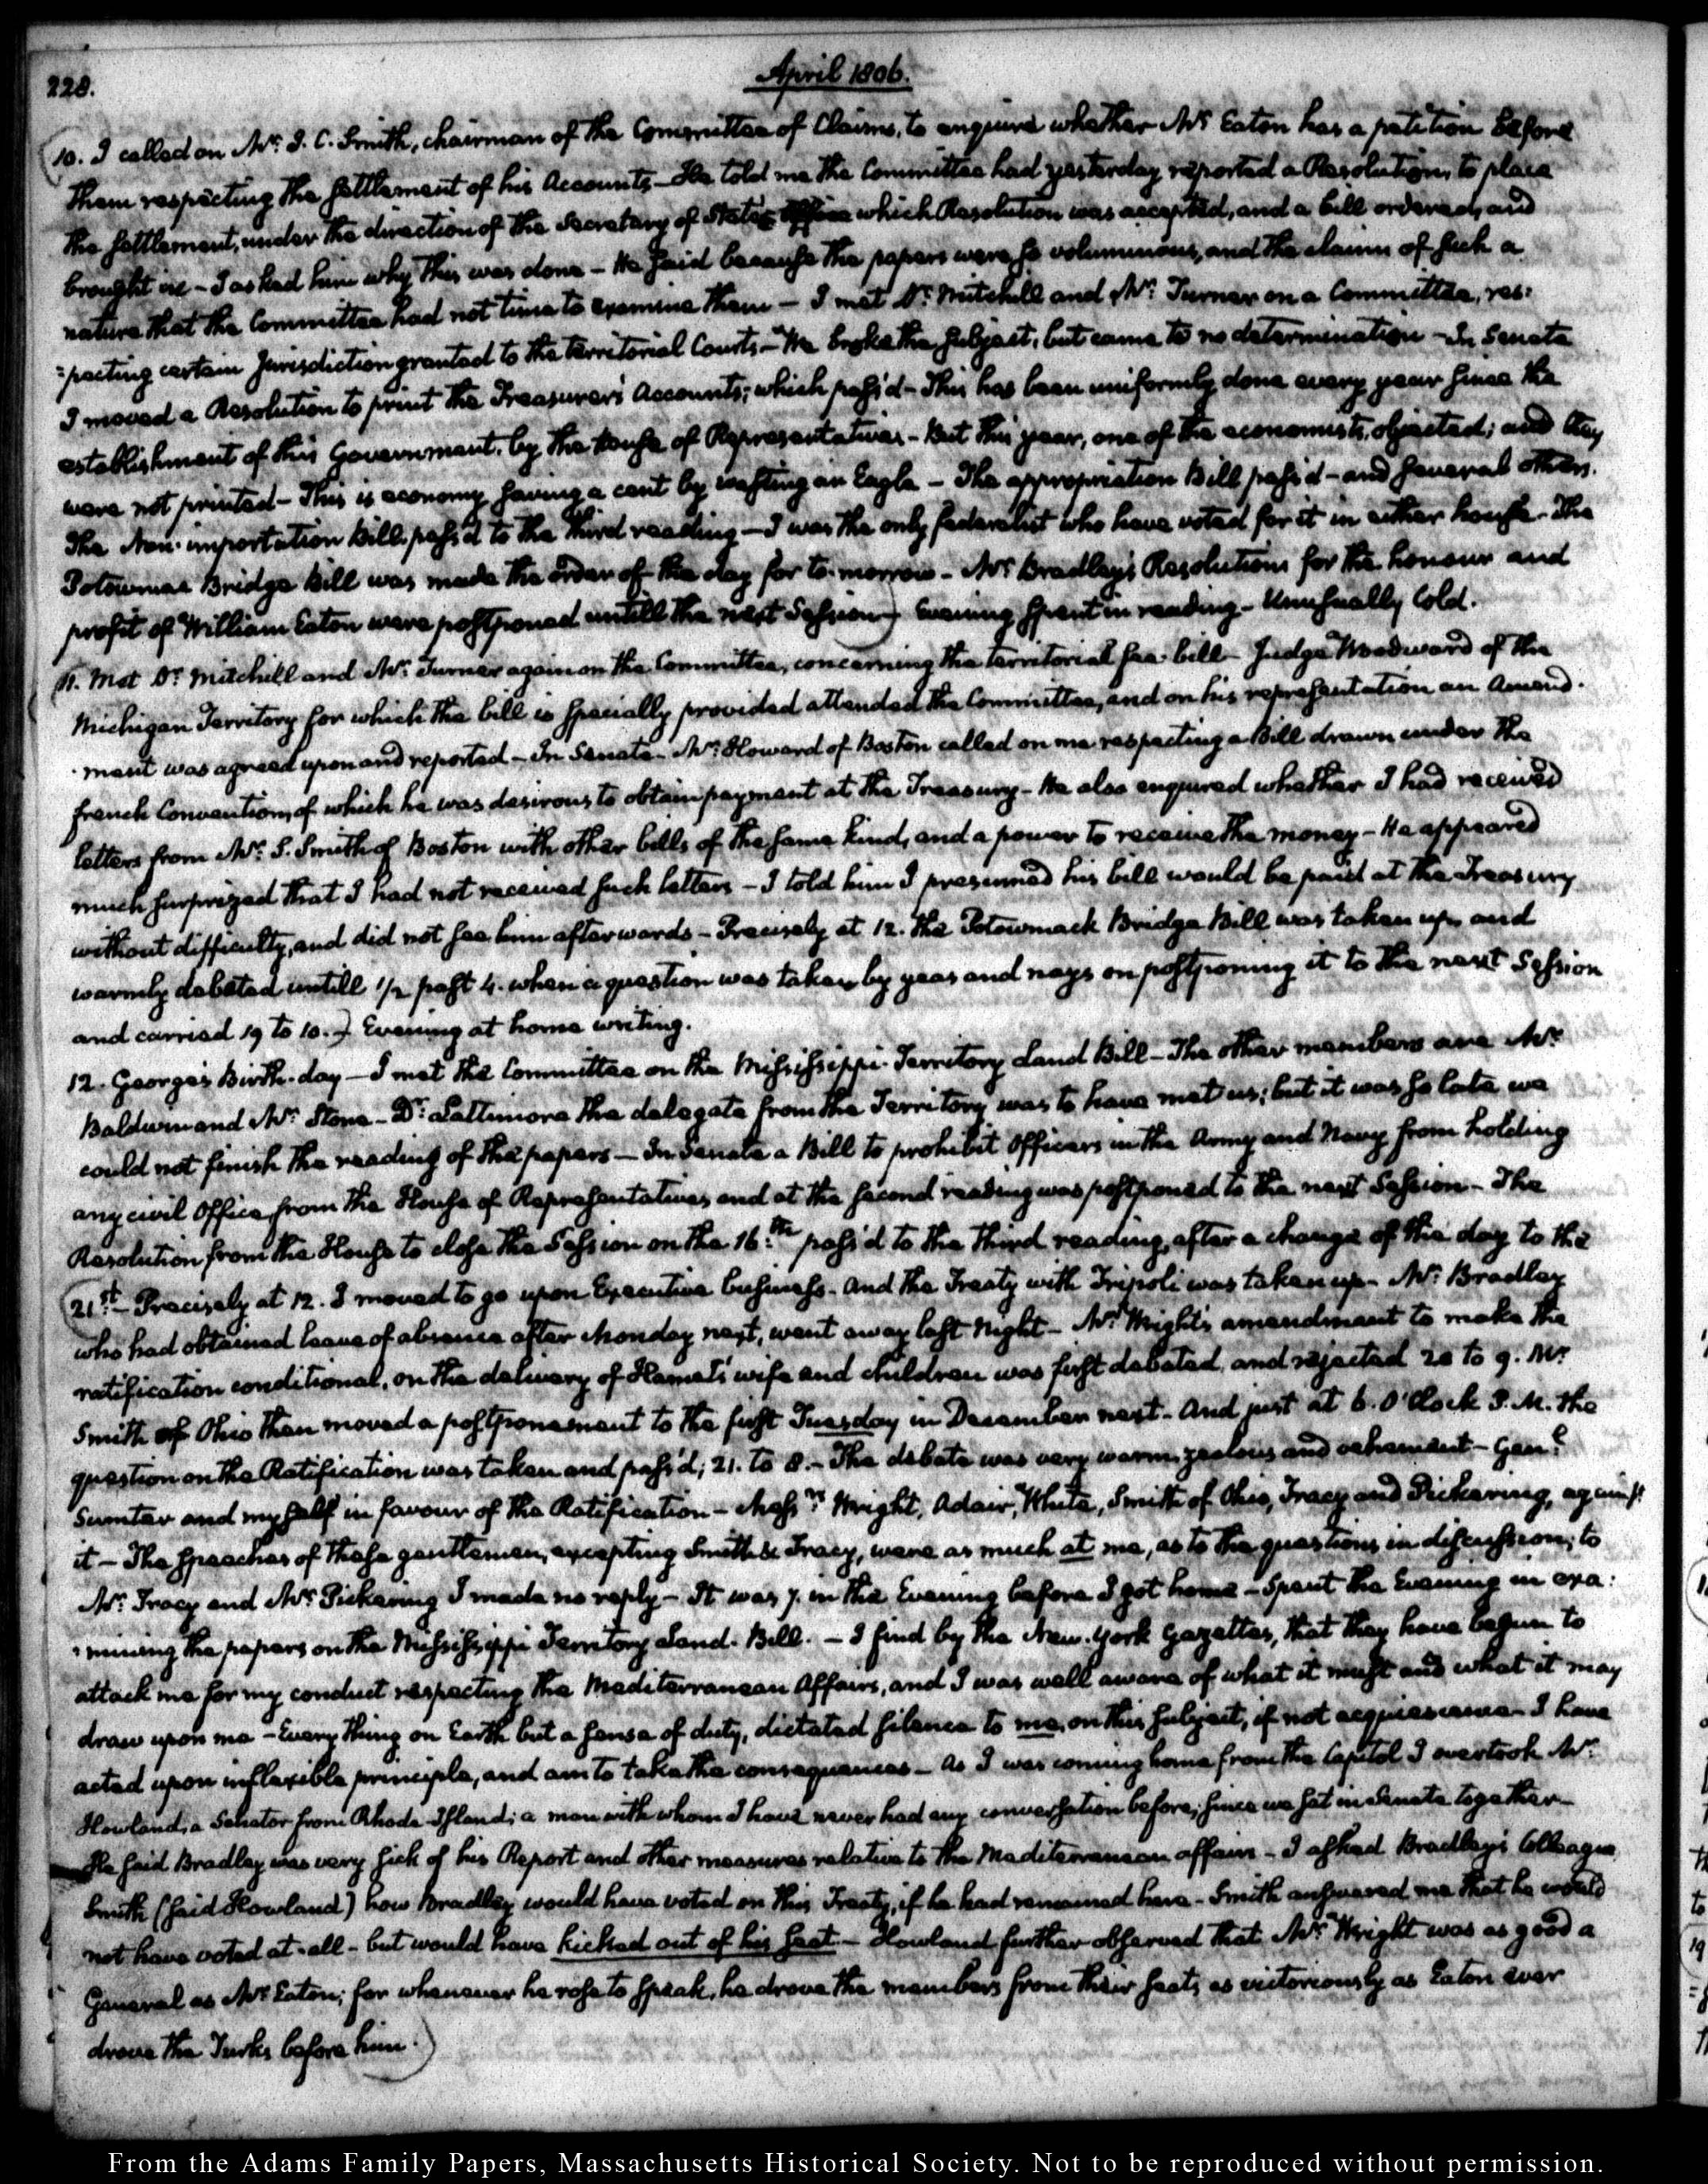 228.
April 1806.
10. I called on Mr. J. C. Smith, chairman of the Committee of Claims, to enquire whether Mr. Eaton has a petition before
them respecting the settlement of his Accounts – He told me the Committee had yesterday reported a Resolution, to place
the settlement, under the direction of the Secretary of State, which Resolution was accepted, and a bill ordered, and
brought in – I asked him why this was done – He said because the papers were so voluminous, and the claims of such a
nature that the Committee had not time to examine them – I met Dr. Mitchill and Mr. Turner on a Committee, res:
:pecting certain Jurisdiction granted to the territorial Courts – We broke the subject, but came to no determination – In Senate
I moved a Resolution to print the Treasurer's Accounts; which pass'd – This has been uniformly done every year since the
establishment of this Government, by the house of Representatives – But this year, one of the economists, objected; and they
were not printed – This is economy saving a cent by wasting an Eagle – The appropriation Bill pass'd – and several others.
The Non-importation Bill pass'd to the third reading – I was the only federalist who have voted for it in either house – The
Potowmac Bridge Bill was made the order of the day for to-morrow – Mr. Bradley's Resolutions for the honour and
profit of William Eaton were postponed untill the next Session) Evening spent in reading – Unusually Cold.
11. Met Dr. Mitchill and Mr. Turner again on the Committee, concerning the territorial fee-bill – Judge Woodward of the
Michigan Territory for which the bill is specially provided attended the Committee, and on his representation an Amend-
-ment was agreed upon and reported – In Senate – Mr. Howard of Boston called on me respecting a Bill drawn under the
french Convention, of which he was desirous to obtain payment at the Treasury – He also enquired whether I had received
letters from Mr. S. Smith of Boston with other bills of the same kind, and a power to receive the money – He appeared
much surprized that I had not received such letters – I told him I presumed his bill would be paid at the Treasury
without difficulty, and did not see him afterwards – Precisely at 12. the Potowmack Bridge Bill was taken up, and
warmly debated untill 1/2 past 4. when a question was taken by yeas and nays on postponing it to the next Session
and carried 19 to 10.) Evening at home writing.
12. George's Birth-day – I met the Committee on the Mississippi-Territory Land Bill – The other members are Mr.
Baldwin and Mr. Stone – Dr. Lattimore the delegate from the Territory was to have met us; but it was so late we
could not finish the reading of the papers – In Senate a Bill to prohibit Officers in the Army and Navy from holding
any civil Office, from the House of Representatives, and at the second reading was postponed to the next Session – The
Resolution from the House to close the Session on the 16.th pass'd to the third reading, after a change of the day to the
21st – Precisely at 12. I moved to go upon Executive business – And the Treaty with Tripoli was taken up – Mr. Bradley
who had obtained leave of absence after Monday next, went away last Night – Mr. Wright's amendment to make the
ratification conditional, on the delivery of Hamet's wife and children was first debated, and rejected 20 to 9. Mr.
Smith of Ohio then moved a postponement to the first Tuesday in December next – And just at 6. O'Clock P.M. the
question on the Ratification was taken and pass'd; 21. to 8. – The debate was very warm, zealous and vehement – Genl.
Sumter and myself in favour of the Ratification – Messrs. Wright, Adair, White, Smith of Ohio, Tracy and Pickering, against
it – The speeches of these gentlemen, excepting Smith & Tracy, were as much at me, as to the questions in discussion; to
Mr. Tracy and Mr. Pickering I made no reply – It was 7. in the Evening before I got home – Spent the Evening in exa:
:mining the papers on the Mississippi Territory Land-Bill. – I find by the New-York Gazettes, that they have begun to
attack me for my conduct respecting the Mediterranean Affairs, and I was well aware of what it must and what it may
draw upon me – Every thing on Earth but a sense of duty, dictated silence to me, on this subject, if not acquiescence – I have
acted upon inflexible principle, and am to take the consequences – As I was coming home from the Capitol I overtook Mr.
Howland, a Senator from Rhode-Island; a man with whom I have never had any conversation before, since we sat in Senate together –
He said Bradley was very sick of his Report and other measures relative to the Mediterranean affairs – I asked Bradley's Colleague
Smith (said Howland) how Bradley would have voted on this Treaty, if he had remained here – Smith answered me that he would
not have voted at-all – but would have kicked out of his seat – Howland further observed that Mr. Wright was as good a
General as Mr. Eaton; for whenever he rose to speak, he drove the members from their seats, as victoriously as Eaton ever
drove the Turks before him.)
From the Adams Family Papers, Massachusetts Historical Society. Not to be reproduced without permission.